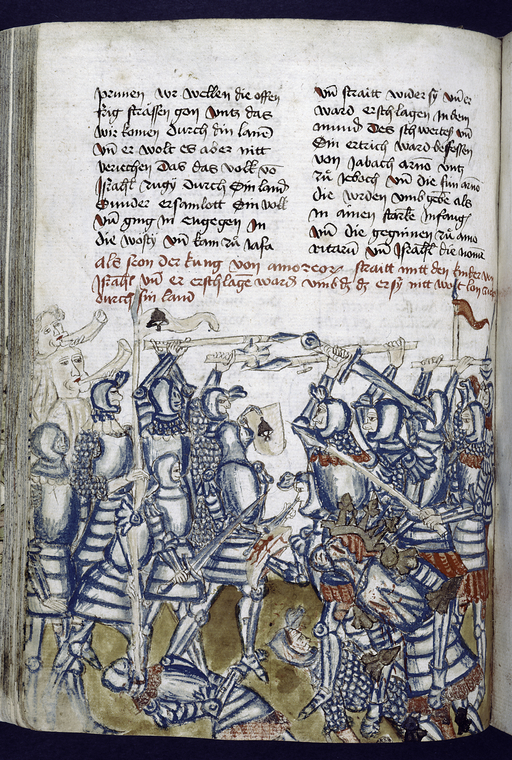 prunen wir wellen die offen
frig strässen gon untz das
wir komen durch din land
Vn̄ er wolt es aber nitt
veriechen Das das volk vo
Jsrahel zugy durch Sin land
Sunder ersamlott Sin volk
Vn̄ ging in engegen in
die wosty vn̄ kam zu Jasa
vn̄ straitt wider sy vn̄ er
ward erschlagen in dem
mund des schwertes vn̄
Sin ertrich ward besessen
von Jabach arno untz
zu Jeboch vn̄ die sun amo
die wrden umbgebe als
in ainen starke infang
vn̄ die gegninen zu amo
vn̄ Jsrahel die nome
als seon der kung von amoreor straitt mitt den kinder von
Jsrahel vn̄ er erschlage ward umb dz er sy nitt wolt lon
durch sin land